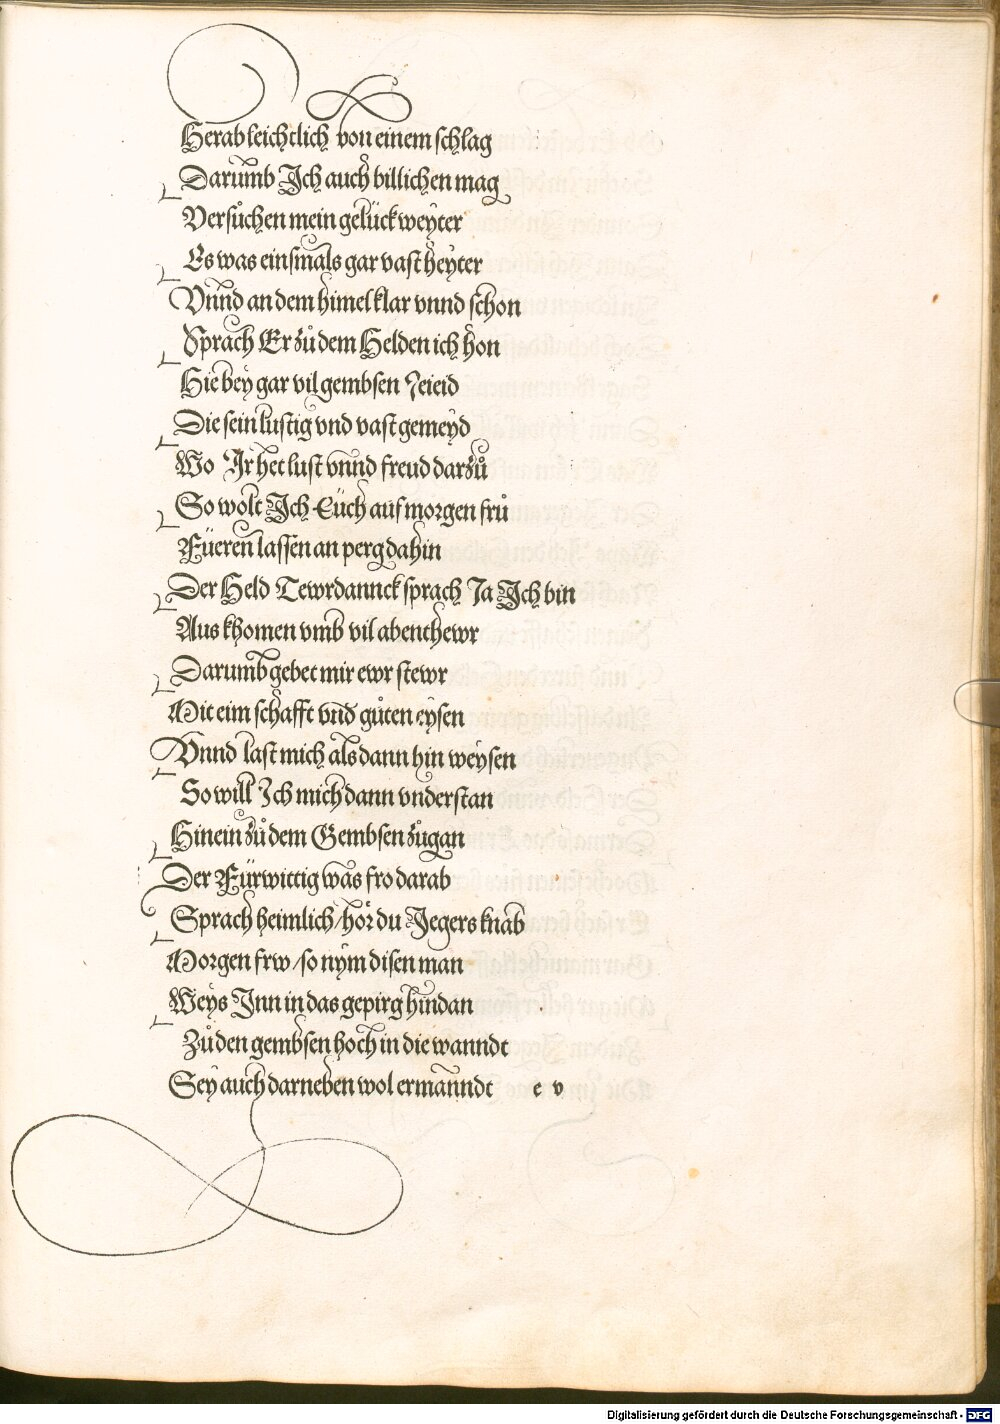 Herab leichtlich von einem schlag
Darumb Ich auch billichen mag
Versůchen mein gelück weyter
Es was einsmals gar vast heyter
Vnnd an dem himel klar vnnd schon
Sprach Er zů dem Helden ich hon
Hie bey gar vil gembsen Jeieid
Die sein lustig vnd vast gemeyd
Wo Ir het lust vnnd freud darzů
So wolt Ich Eüch auf morgen frů
Füeren lassen an perg dahin
Der Held Tewrdannck sprach Ja Ich bin
Aus khomen vmb vil abenthewr
Darumb gebet mir ewr stewr
Mit eim schafft vnd gůten eysen
Vnnd last mich als dann hin weysen
So will Ich mich dann vnderstan
Hinein zů dem Gembsen zůgan
Der Fürwittig was fro darab
Sprach heimlich / hör du Jegers knab
Morgen frw / so nym disen man
Weys Inn in das gepirg hindan
Zů den gembsen hoch in die wanndt
Sey auch darneben wol ermanndt e v
Digitalisierung gefördert durch die Deutsche Forschungsgemeinschaft - DFG